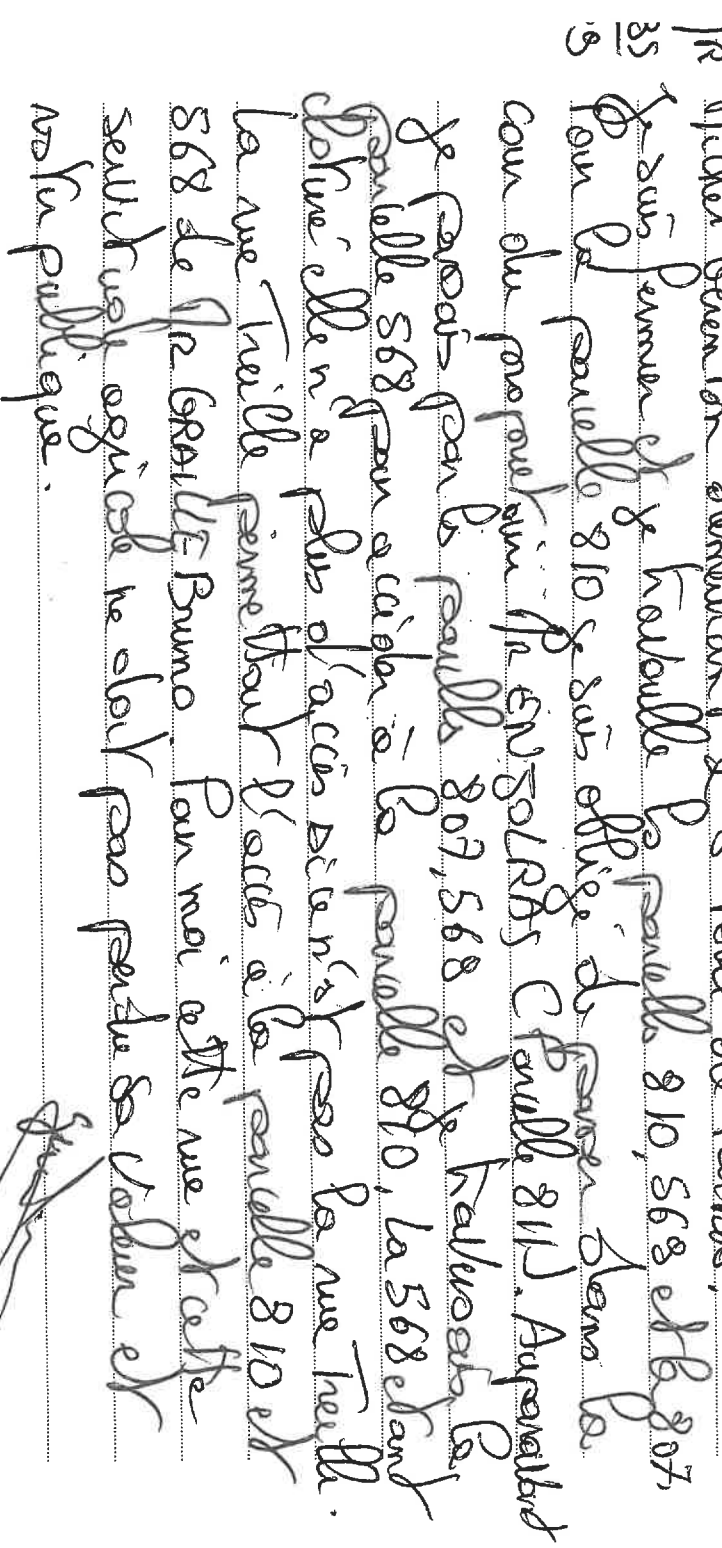 Je suis fermier et je travaille la parcelle 810, 568 et la 807.
Pour la parcelle 810 je suis obligé de passer dans la
cour du propriétaire Mr ENJOLRAS C parcelle 811. Auparavant
je passais par la parcelle 807, 568 et je traversais la
parcelle 568 pour accéder à la parcelle 810, la 568 étant
cloturé elle n'a plus d'accès si ce n'est pas la rue Treille.
La rue Treille permettant l'accès à la parcelle 810 et
568 de Mr GRAILLE Bruno. Pour moi cette rue et cette
servitude agricole ne doit pas perdre sa valeur et
rester publique.